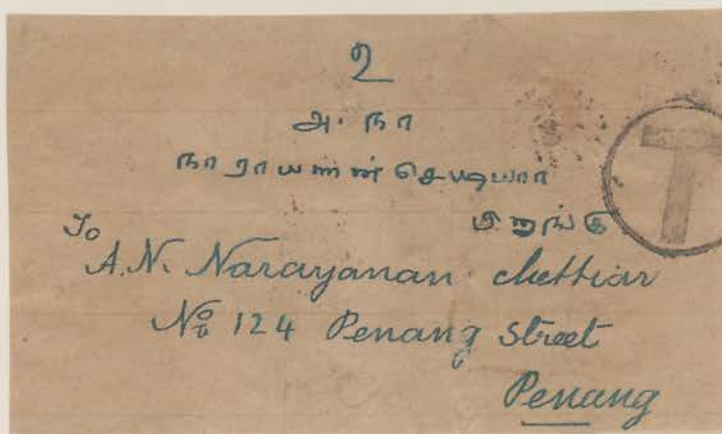 உ
அ. நா
நாராயணன் செட்டியார்
பினாங்கு
T
To
A.N. Narayanan chettiar
No 124 Penang street
Penang